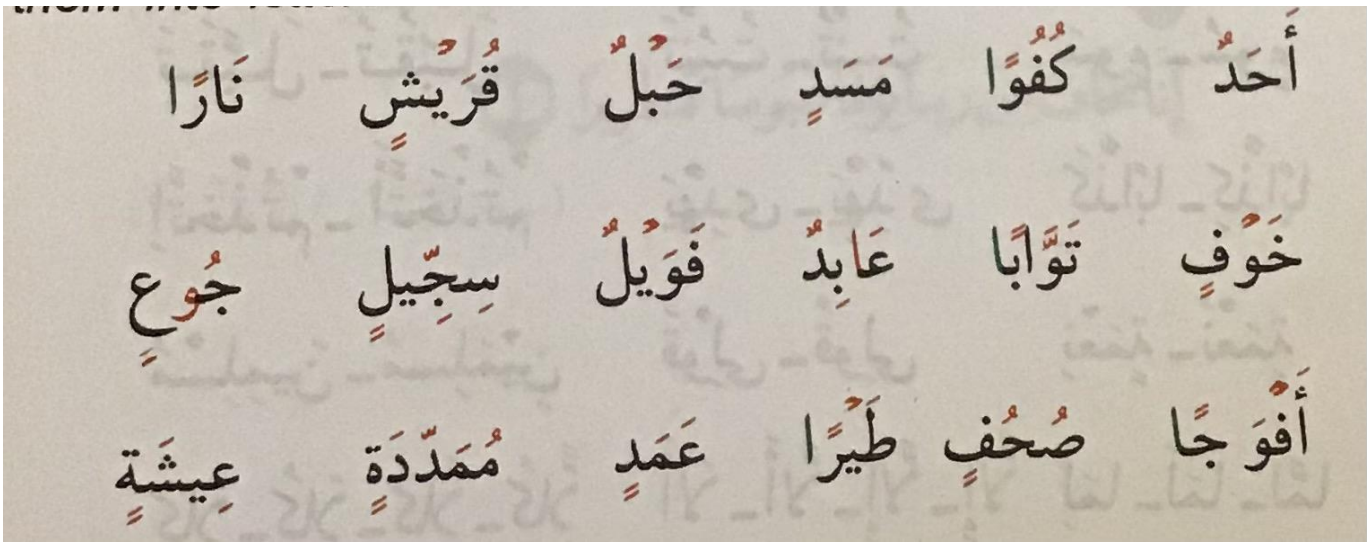 them into
أَحَدٌ كُفُوًا مَسَدٍ حَبْلٌ قُرَيْشٍ نَارًا
خَوْفٍ تَوَّابًا عَابِدٌ فَوَيْلٌ سِجِّيلٍ جُوعٍ
أَفْوَ جًا صُحُفٍ طَيْرًا عَمَدٍ مُمَدَّدَةٍ عِيشَةٍ